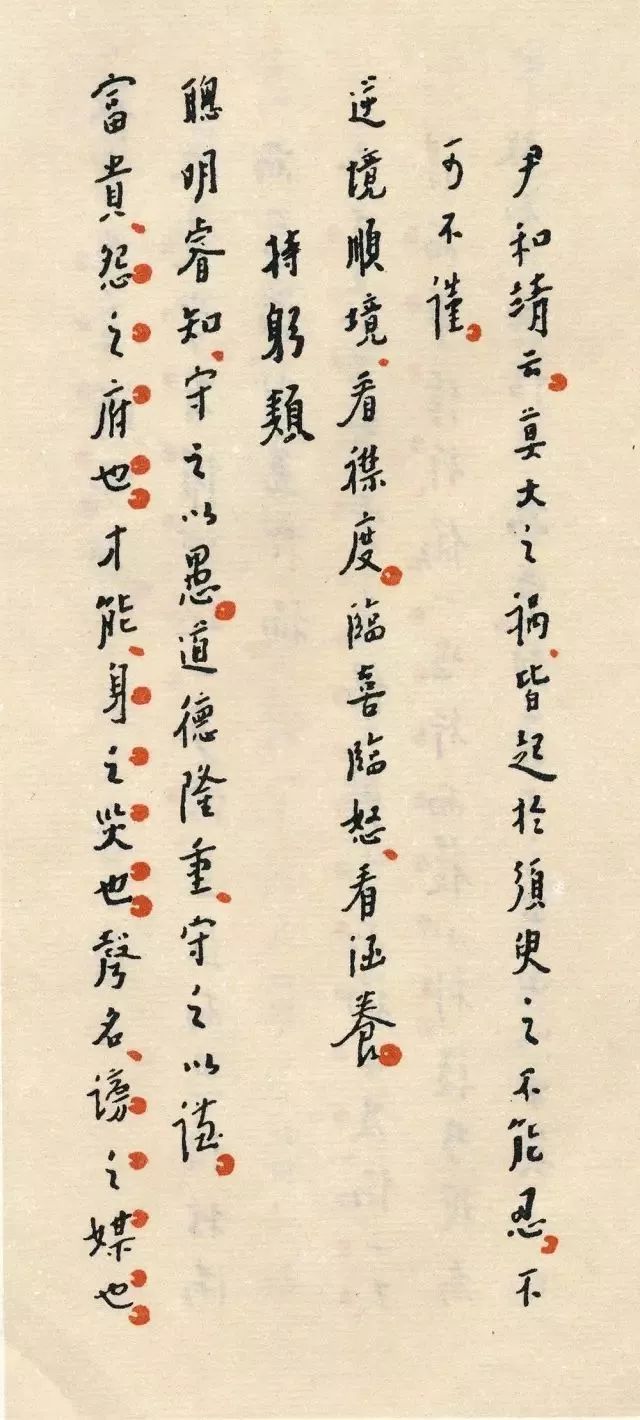 尹和靖云莫大之禍、皆起於須臾之不能忍。不
可不謹。
逆境順境、看襟度。臨喜臨怒、看涵養。
持躬類
聰明睿知、守之以愚。道德隆重、守之以謙。
富貴、怨之府也才能、身之災也聲名、謗之媒也